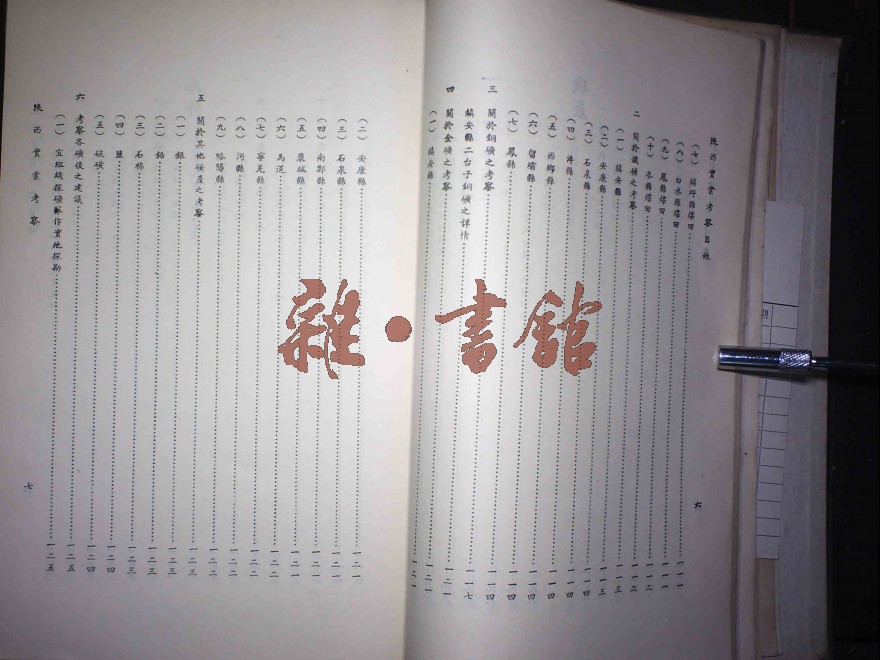 陝西實業考察目錄
六
(七) 鎮坪縣煤田……一一一
(八) 白水縣煤田……一一一
(九) 鳳縣煤田……一一二
(十) 各縣煤田……一一二
二 關於鐵礦之考察……一一二
(一) 鎮安縣……一一三
(二) 安康縣……一一三
(三) 石泉縣……一一四
(四) 洋縣……一一四
(五) 西鄉縣……一一四
(六) 留壩縣……一一四
(七) 鳳縣……一一四
三 關於銅礦之考察……一一四
鎮安縣二台子銅礦之詳情……一一七
四 關於金礦之考察……一二一
(一) 鎮安縣……一二一
(二) 安康縣……一二一
(三) 石泉縣……一二一
(四) 南鄭縣……一二一
(五) 褒城縣……一二一
(六) 馬道……一二二
(七) 寧羌縣……一二二
(八) 沔縣……一二二
(九) 略陽縣……一二二
五 關於其他礦產之考察……一二三
(一) 銀……一二三
(二) 鉛……一二三
(三) 石棉……一二三
(四) 鹽……一二四
(五) 硫磺……一二四
六 考察各礦後之建議……一二五
(一) 宜組織探礦隊作實地探勘……一二五
陝西實業考察
七
雜·書館